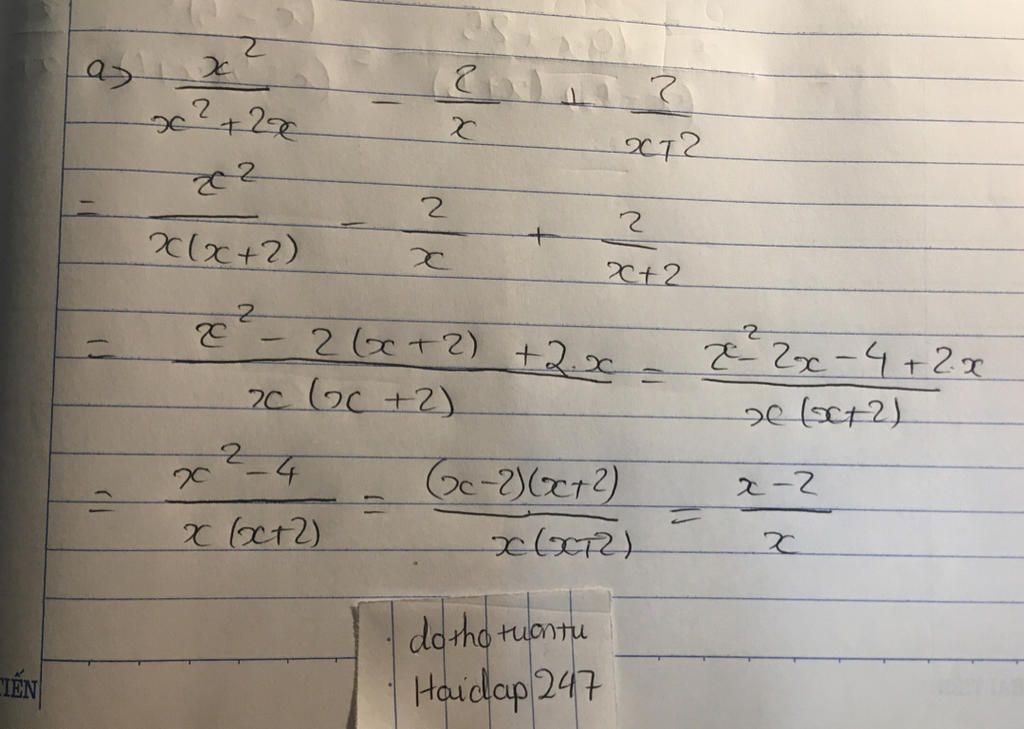 a) x²/(x²+2x) - 2/x + 2/(x+2)
= x²/(x(x+2)) - 2/x + 2/(x+2)
= (x² - 2(x+2) + 2.x)/(x(x+2)) = (x² - 2x - 4 + 2.x)/(x(x+2))
= (x² - 4)/(x(x+2)) = ((x-2)(x+2))/(x(x+2)) = (x-2)/x
dothotuontu
Hoidap247
TIẾN